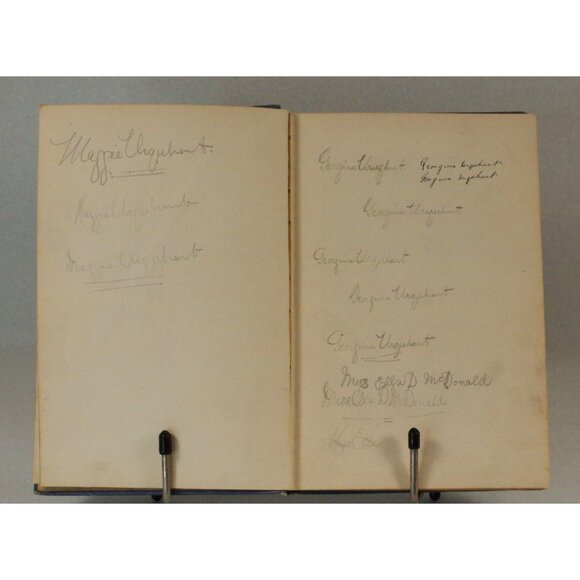 Maggie Urquhart.
Maggie Urquhart
Maggie Urquhart
Georgina Urquhart. Georgina Urquhart
Georgina Urquhart
Georgina Urquhart
Georgina Urquhart
Georgina Urquhart
Georgina Urquhart
Miss Ella D McDonald
Miss D McDonald